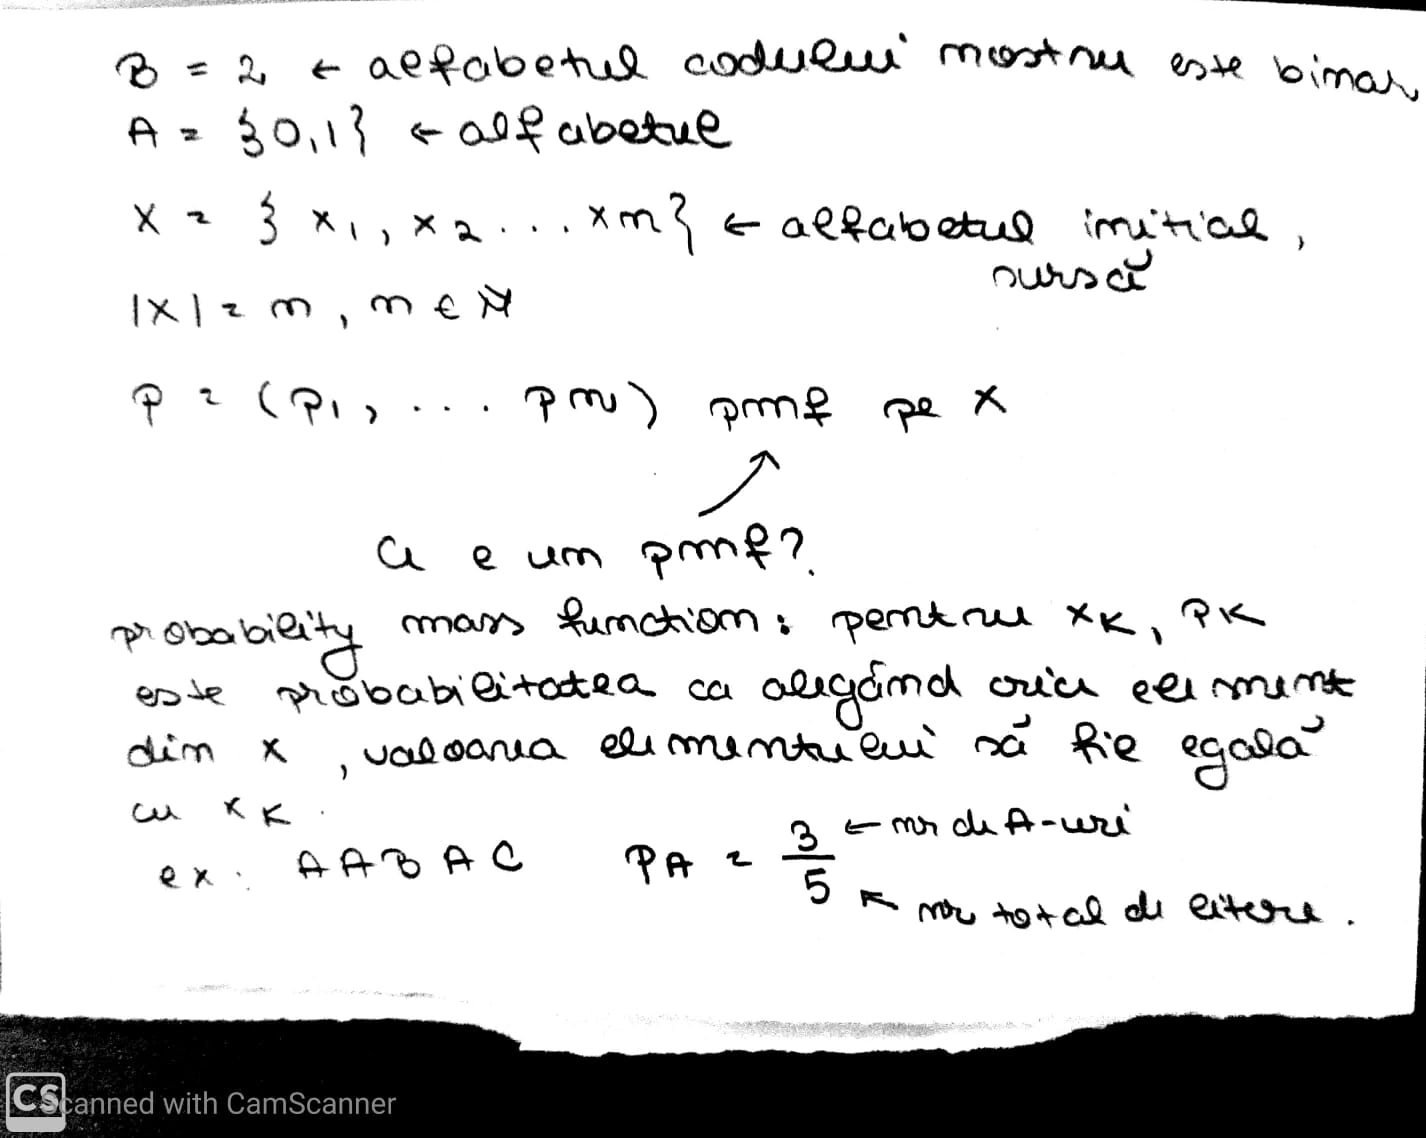 B = 2 ← alfabetul codului nostru este binar
A = {0,1} ← alfabetul
X = { x1, x2 ... xn} ← alfabetul initial,
sursă
|X| = n, n ∈ N
P = (p1, ... pn) pmf pe X
Ce e un pmf?
probability mass function: pentru xK, PK
este probabilitatea ca alegând orice element
din X, valoarea elementului să fie egală
cu xK.
ex: A A B A C PA = 3/5 ← nr de A-uri
nr total de litere.
CS Scanned with CamScanner